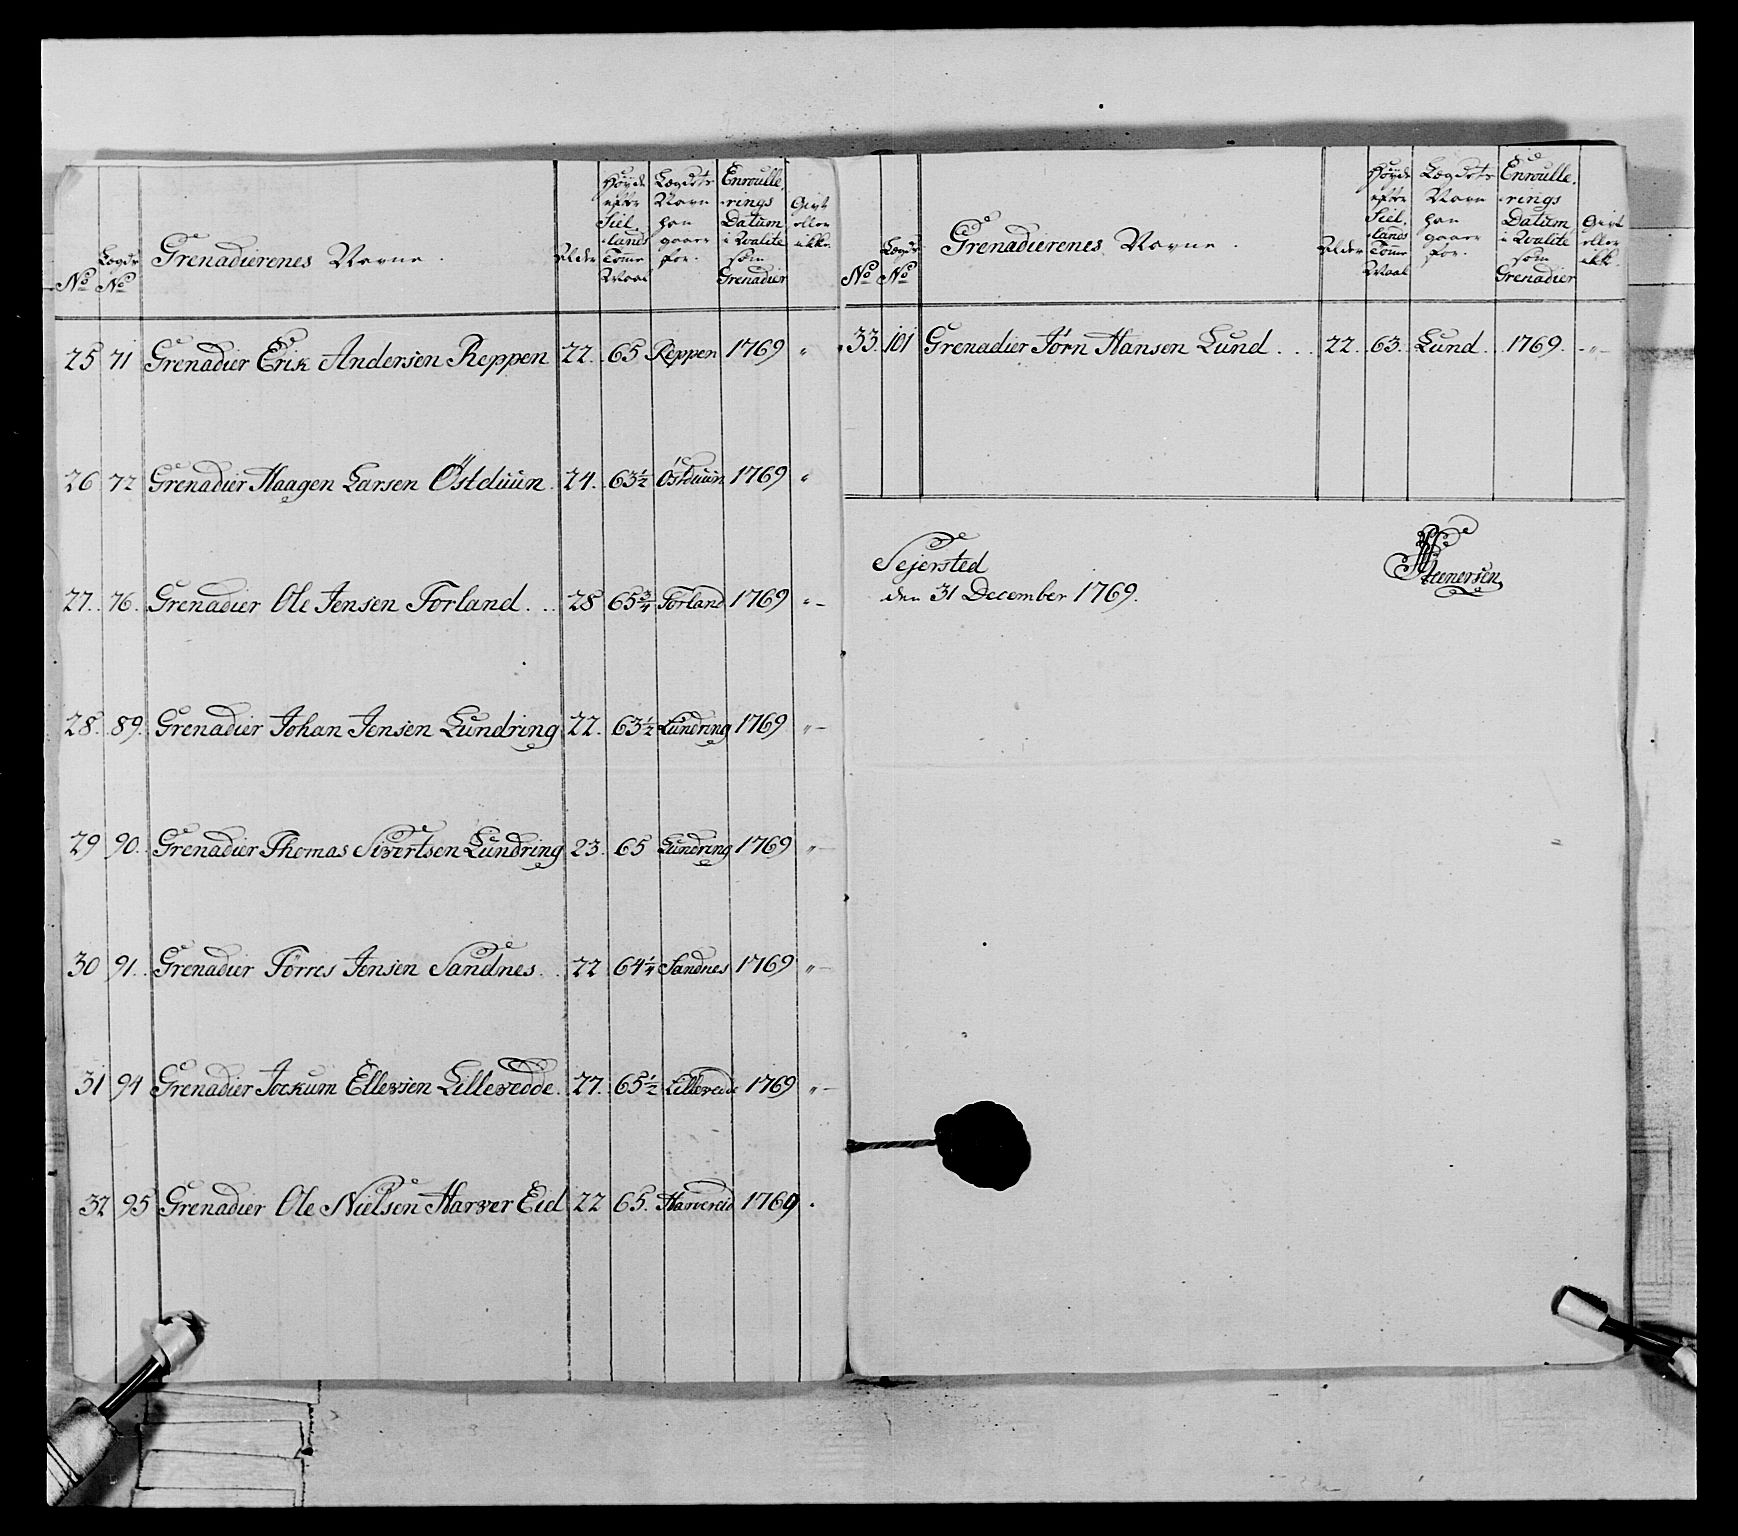 No
Lægds No
Grenadierenes Navne.
Alder
Høyde efter Siellands Tomme Maal
Lægdets Navn han gaaer for.
Enroullerings Datum i Qvalite som Grenadier
Givt eller ikke.
25 71 Grenadier Erik Andersen Reppen 22. 65 Reppen 1769 "
26 72 Grenadier Haagen Larsen Östduun. 24. 63½ Östduun 1769 "
27. 76. Grenadier Ole Jensen Forland... 28 65¾ Forland 1769 "-
28. 89. Grenadier Johan Jensen Lundring 22. 63½ Lundring 1769 "-
29 90. Grenadier Thomas Sivertsen Lundring 23. 65 Lundring 1769 "-
30 91. Grenadier Törres Jensen Sandnes.. 22 64¼ Sandnes 1769 "-
31 94 Grenadier Jockum Ellevsen Lilleredde. 27. 65½ Lilleredde 1769 "-
32 95 Grenadier Ole Nielsen Harver Eid 22 65. Harvereid 1769 "
No
Lægds No
Grenadierenes Navne.
Alder
Høyde efter Siellands Tomme Maal
Lægdets Navn han gaaer for.
Enroullerings Datum i Qvalite som Grenadier
Givt eller ikke.
33. 101 Grenadier Jörn Hansen Lund... 22. 63. Lund.. 1769. -"-
Sejersted
den 31 December 1769.
Steenersen